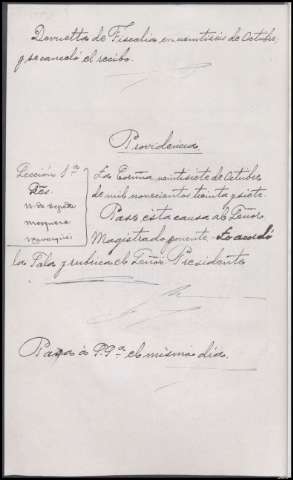 Devuelta de Fiscalia en veintiseis de Octubre,
y se canceló el recibo.
Providencia
Sección 1ª
Sres.
La Coruña veintisiete de Octubre
de mil novecientos treinta y siete
Mosquera
Pase esta causa al Señor
Magistrado ponente. Lo acordó
la Sala y rubrica el Señor Presidente
Pasa á S.Sª el mismo dia.